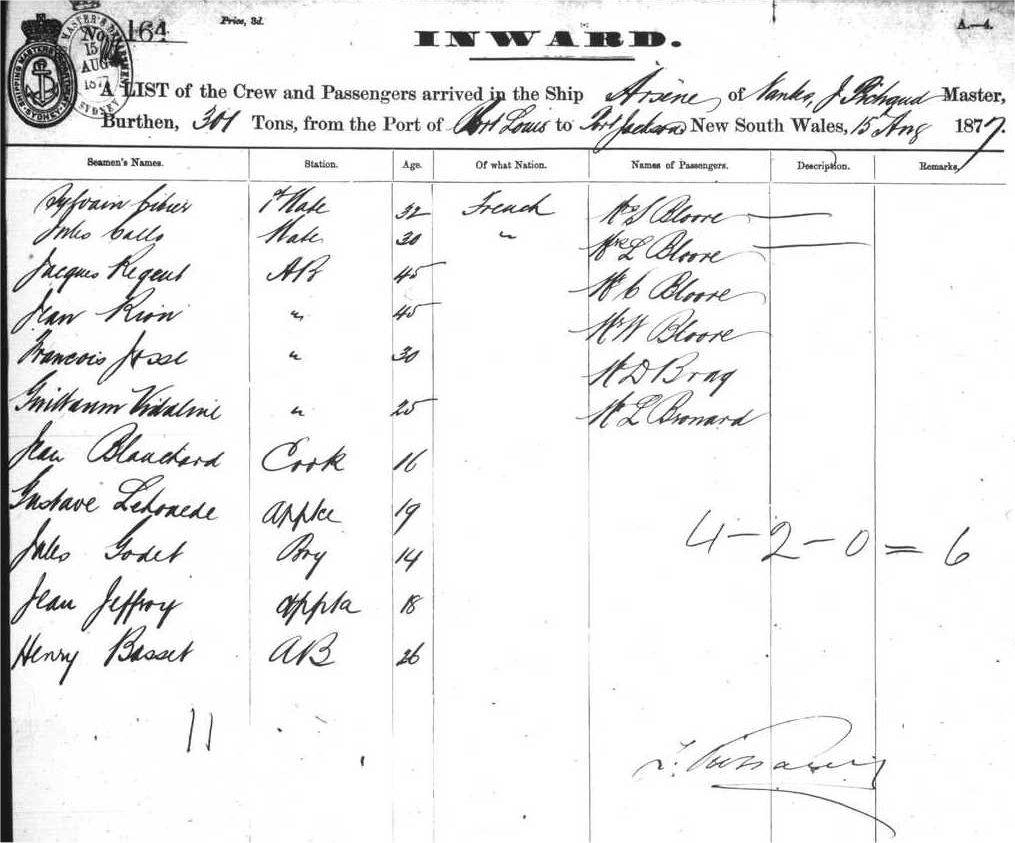 Price, 3d.
A.—4.
164
INWARD.
SHIPPING MASTER'S OFFICE SYDNEY
MASTER'S DEPARTMENT
No
15
AUG
187
SYDNEY
A LIST of the Crew and Passengers arrived in the Ship Arsene of Nantes, J Master,
Burthen, 301 Tons, from the Port of Port Louis to Port Jackson New South Wales, 15th Aug 1877.
Seamen's Names. Station. Age. Of what Nation. Names of Passengers. Description. Remarks.
Sylvain 1st Mate 32 French Mr S Bloore
Jules Mate 30 " Mrs L Bloore
Jacques Regent AB 45 Mr C Bloore
Jean Rion " 45 Mr W Bloore
Francois Josse " 30 Mr D Brag
Guillaum Vidaline " 25 Mr L Bronard
Jean Blanchard Cook 16
Gustave Appce 19
Jules Godet Boy 14
Jean Jeffroy Appce 18
Henry Basset AB 26
4 - 2 - 0 = 6
11